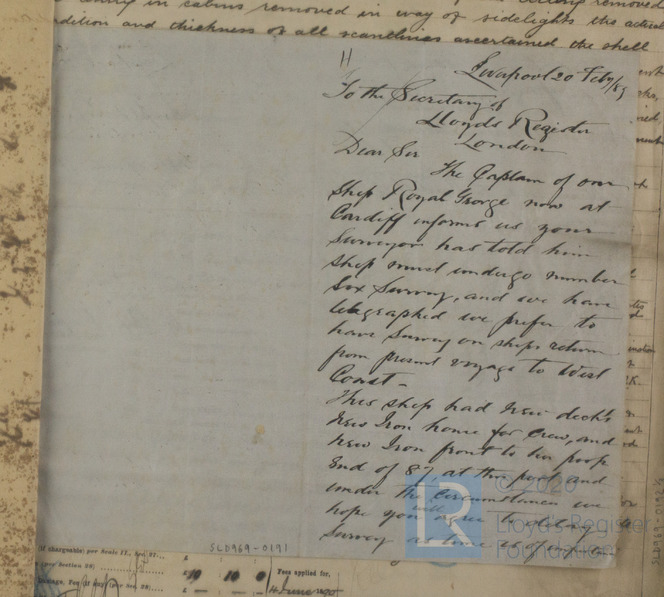 in cabins removed in way of sidelights the actual
condition and thickness of all scantlings ascertained the shell
H
Liverpool 20 Feby/89
To the Secretary of
Lloyds Register
London
Dear Sir
The Captain of our
ship Royal George now at
Cardiff informs us your
Surveyor has told him
ship must undergo number
Six Survey, and we have
telegraphed we prefer to
have Survey on ships return
from present voyage to West
Coast -
This ship had New decks
New Iron home for Crew, and
New Iron front to her poop
End of 87, at this port and
under the Circumstances we
hope you will agree to
Survey as
© 2020
LR
Lloyd's Register
Foundation
(If chargeable) per Scale II., Sec. 27...
(per Section 28)
£ 10 : 10 : 0
Fees applied for,
SLD969-0191